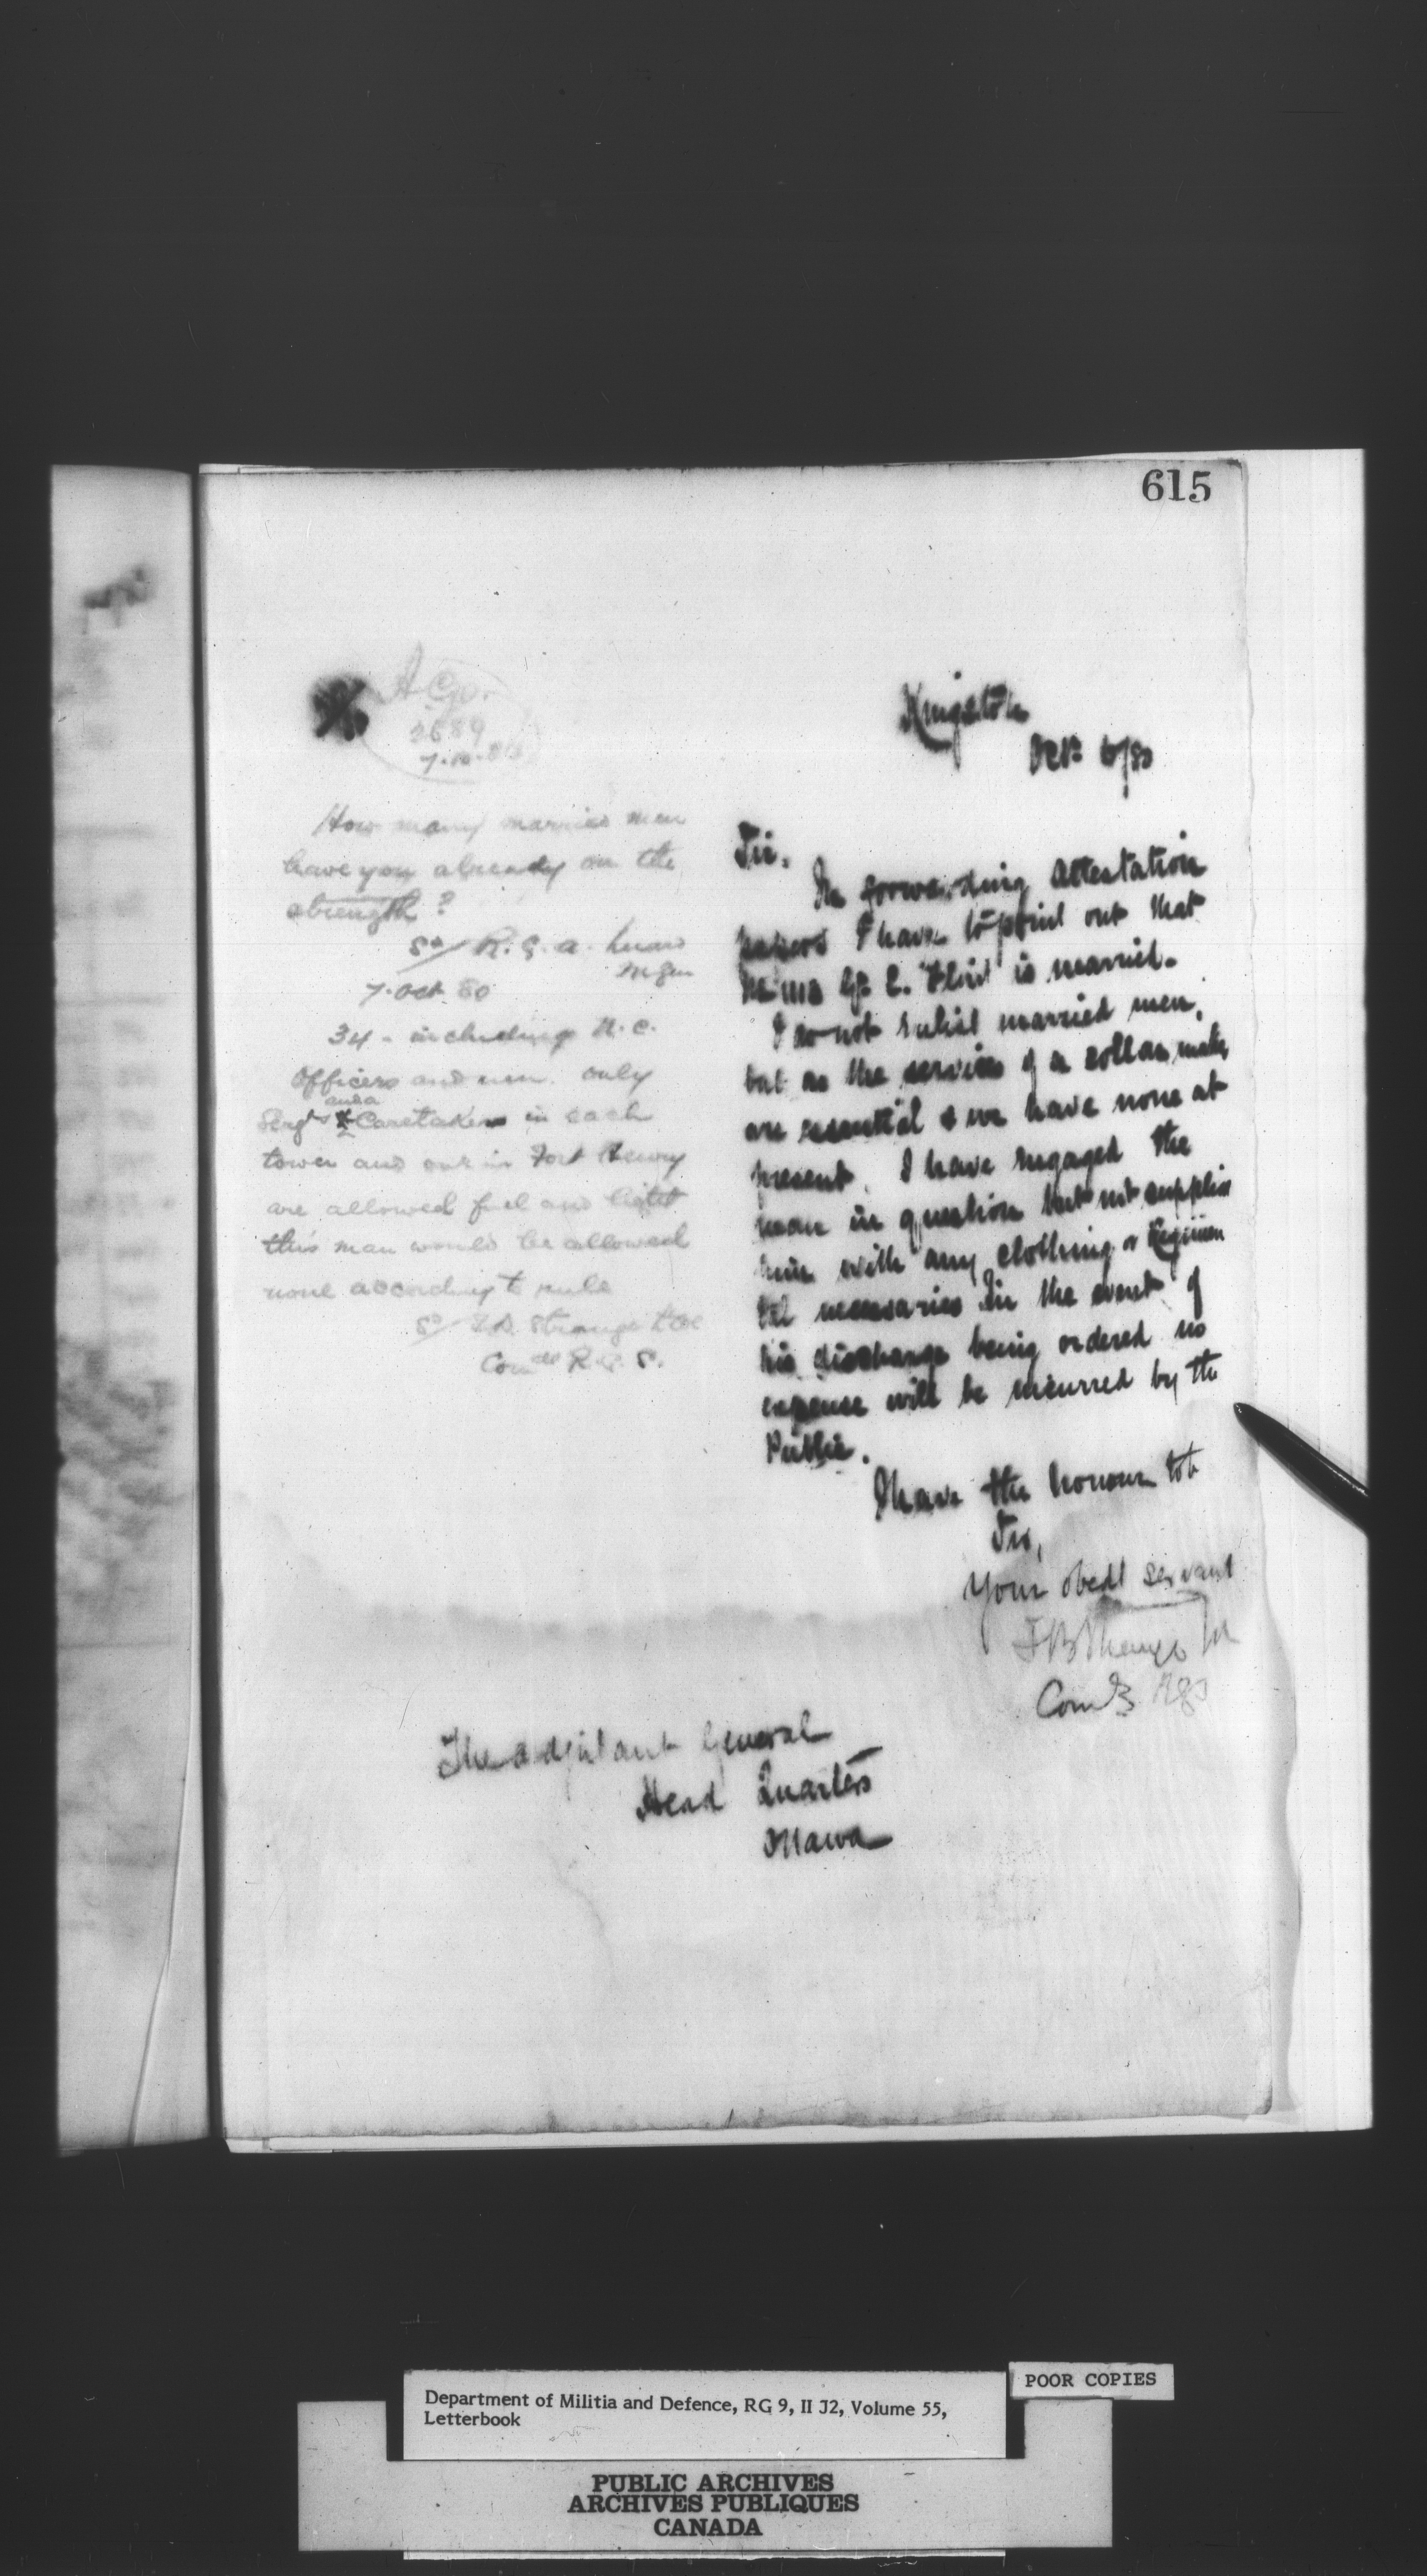 615
A.G.O.
2689
7.10.80
How many married men
have you already on the
strength?
Sd/ R. G. A. Luard
M Gen
7. Oct. 80
34 - including N. C.
Officers and men. only
Sergts and a Caretaker in each
tower and one in Fort Henry
are allowed fuel and light
this man would be allowed
none according to rule
Sd/ T.B. Strange Lt Col
Comdt R. G. S.
Kingston
Oct 6/80
Sir,
In forwarding Attestation
papers I have to point out that
Gr. E. is married.
I do not enlist married men,
but as the services of a collar maker
are essential & we have none at
present, I have engaged the
man in question but not supplied
him with any clothing or Regimen
tal necessaries. In the event of
his discharge being ordered no
expense will be incurred by the
Public.
I have the honour to be
Sir,
Your obedt servant
T B Strange
Comdt RGS
The Adjutant General
Head Quarters
Ottawa
POOR COPIES
Department of Militia and Defence, RG 9, II J2, Volume 55,
Letterbook
PUBLIC ARCHIVES
ARCHIVES PUBLIQUES
CANADA